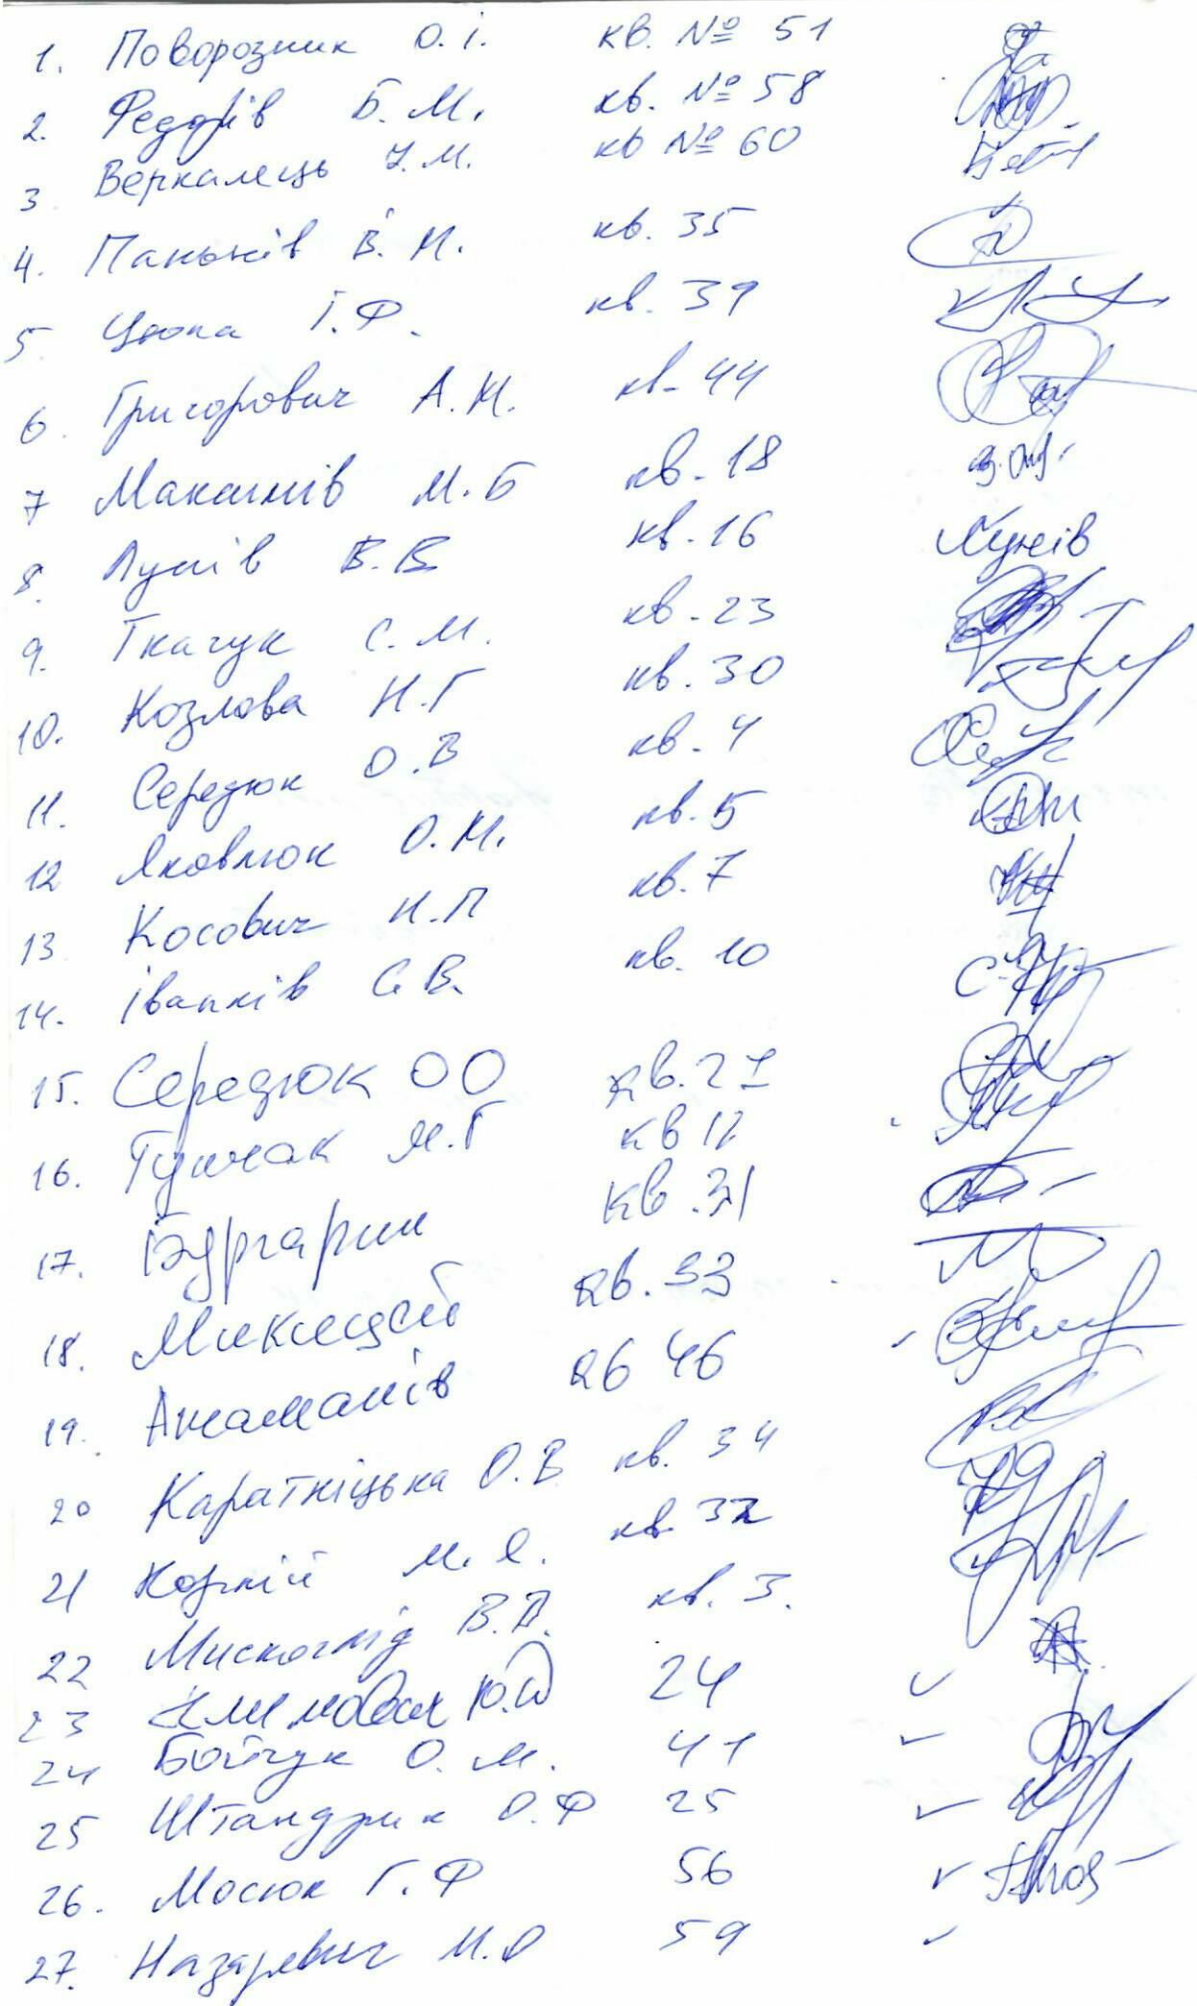 1. Поворозник О.І. кв. № 51
2. Федорів Б.М. кв. № 58
3 Веркалець У.М. кв № 60
4. Паньків В.М. кв. 35
5 Цюпа І.Ф. кв. 39
6. Григорович А.М. кв. 44
7 Максимів М.Б кв. 18
8. Луків В.В кв. 16 Луків
9. Ткачук С.М. кв. 23
10. Козлова Н.Г кв. 30
11. Середюк О.В кв. 4
12 Яковлюк О.М. кв. 5
13 Косович Н.П кв. 7
14. Іванків С.В. кв. 10
15. Середюк О О кв. 21
16. М.Г кв 12
17. кв. 31
18. Микицей кв. 33
19. Атаманів кв 46
20 Каратніцька О.В кв. 34
21 Корній М.Я. кв. 32
22 В.В. кв. 3.
23 Ю.Д 24
24 Бойчук О.М. 41
25 Штандрик О.Ф 25
26. Мосюк Г.Ф 56
27. Назаревич М.О 59